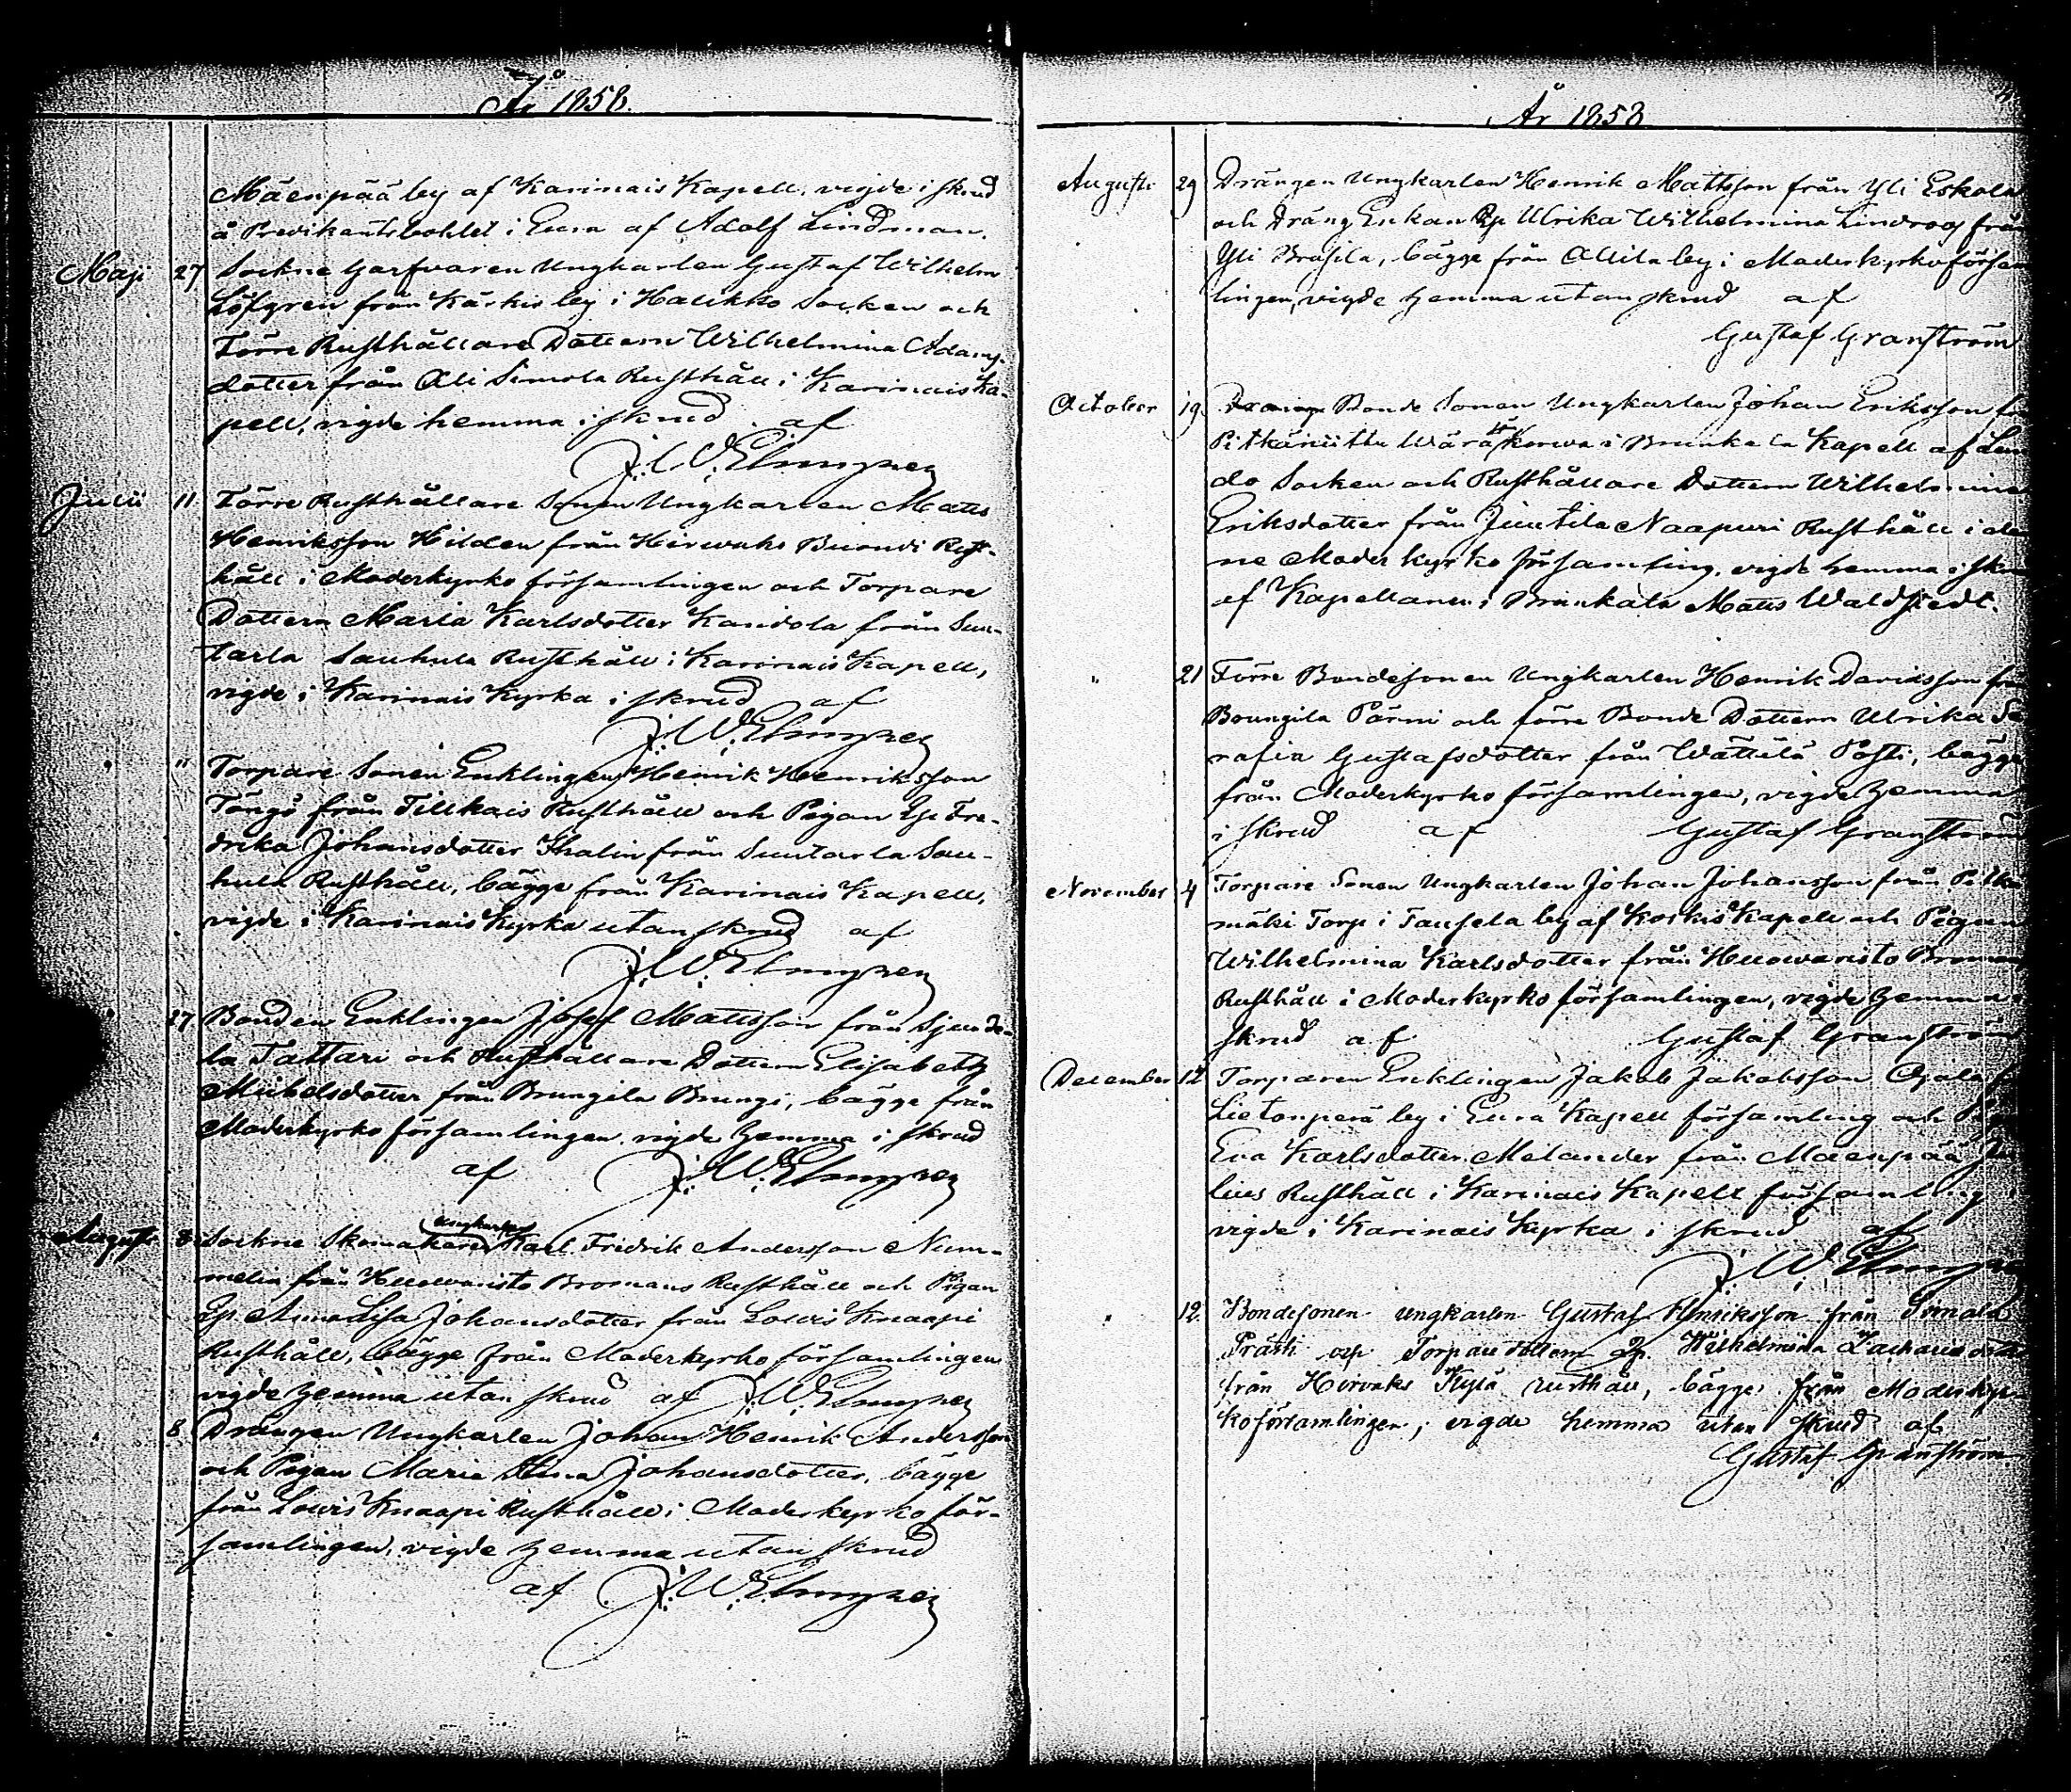 År 1858.
Mäenpää by af Karinais Kapell, vigde i skrud
å Predikantsbohlet i Eura af Adolf Lindman.
Maji 27 Sockne Garfvaren Ungkarlen Gustaf Wilhelm
Löfgren från Kärkis by i Halikko Socken och
Förre Rusthållare Dottern Wilhelmina Adams-
dotter från Ali Simola Rusthåll i Karinais Ka-
pell, vigde hemma i skrud af
J. W. Elmgren
Julii 11 Förre Rusthållare Sonen Ungkarlen Matts
Henriksson Hilden från Hirwaks Buondi Rust-
håll i Moderkyrko församlingen och Torpare
Dottern Maria Karlsdotter Kandola från Suu-
tarla Sauhula Rusthåll i Karinais Kapell,
vigde i Karinais Kyrka i skrud af
J. W. Elmgren
" " Torpare Sonen Enklingen Henrik Henriksson
Töngö från Tillkais Rusthåll och Pigan Ep. Fre-
drika Johansdotter Thalin från Suutarla Sau-
hula Rusthåll, bägge från Karinais Kapell,
vigde i Karinais Kyrka utan skrud af
J. W. Elmgren
" 27 Bonden Enklingen Josef Mattsson från Sjunde-
la Tattari och Rusthållare Dottern Elisabeth
Michelsdotter från Brungila Brungi, bägge från
Moderkyrko församlingen, vigde hemma i skrud
af J. W. Elmgren
Augusti 8 Sockne Skomakaren Ungkarlen Karl Fredrik Andersson Num-
melin från Huowaristo Bromans Rusthåll och Pigan
Ep. Anna Lisa Johansdotter från Lowis Knaapi
Rusthåll, bägge från Moderkyrko församlingen
vigde hemma utan skrud af J. W. Elmgren
" 8 Drängen Ungkarlen Johan Henrik Andersson
och Pigan Maria Johansdotter, bägge
från Lowis Knaapi Rusthåll i Moderkyrko för-
samlingen, vigde hemma utan skrud
af J. W. Elmgren
År 1858
Augusti 29 Drängen Ungkarlen Henrik Mattsson från Yli Eskola
och Dräng Enkan Ep Ulrika Wilhelmina Lindroos från
Yli Brasila, bägge från Allila by i Moderkyrkoförsam
lingen, vigde hemma utan skrud af
Gustaf Granström
October 19. Bonde Sonen Ungkarlen Johan Eriksson
Pitkäniittu i Brunkala Kapell af Lun
do Socken och Rusthållare Dottern Wilhelmina
Eriksdotter från Juutila Naapuri Rusthåll i den
ne Moder kyrko församling, vigde hemma i skrud
af Kapellanen i Brunkala Matts Waldstedt.
" 21 Förre Bondesonen Ungkarlen Henrik Davidsson
Brungila Pärni och förre Bonde Dottern Ulrika Se
rafia Gustafsdotter från Wättilä Posti, bägge
från Moderkyrko församlingen, vigde hemma
i skrud af Gustaf Granström
November 4 Torpare Sonen Ungkarlen Johan Johansson från Pitkä
mäki Torp i Taussela by af Koskis Kapell och Pigan
Wilhelmina Karlsdotter från Huowaristo Bromans
Rusthåll i Moderkyrko församlingen, vigde hemma i
skrud af Gustaf Granström
December 12 Torparen Enklingen Jakob Jakobsson Ojala
Lietonperä by i Eura Kapell församling och
Eva Karlsdotter Melander från Mäenpää
lius Rusthåll i Karinais Kapell församling
vigde i Karinais Kyrka i skrud af
J. W. Elmgren
" 12. Bondesonen ungkarlen Gustaf Henriksson från
Prästi och Torpare dottern Ep. Wilhelmina Zachariedotter
från Hirvaks rusthåll, bägge från Moderkyr
koförsamlingen, vigde hemma utan skrud af
Gustaf Granström